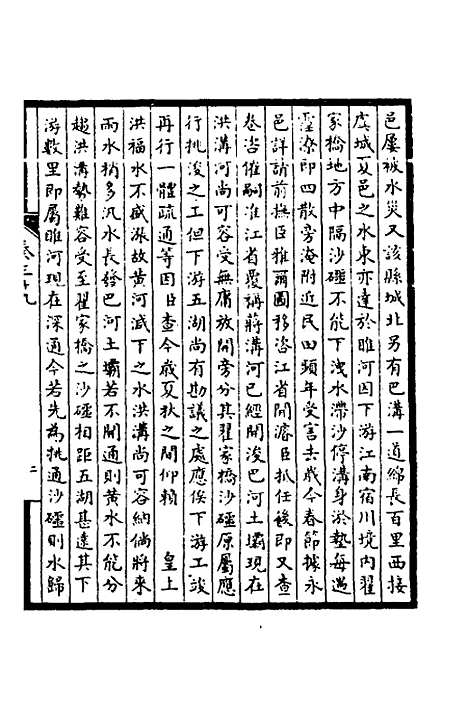 邑屢被水災又該縣城北另有巴溝一道綿長百里西接
虞城夏邑之水東亦達於睢河因下游江南宿州境內翟
家橋地方中隔沙礓不能下洩水滯沙停溝身淤墊每遇
霪潦即四散旁淹附近民田頻年受害去歲今春節據永
邑詳請前撫臣雅爾圖移咨江省開濬臣抵任後即又查
卷咨催嗣淮江省覆稱蔣溝河已經開浚巴河土壩現在
洪溝河尚可容受無庸放開旁分其翟家橋沙礓原屬應
行挑浚之工但下游五湖尚有勘議之處應俟下游工竣
再行一體疏通等因臣查今歲夏秋之間仰賴　皇上
洪福水不盛漲故黃河減下之水洪溝尚可容納倘將來
雨水稍多汛水長發巴河土壩若不開通則黃水不能分
趨洪溝勢難容受至翟家橋之沙礓相距五湖甚遠其下
游數里即屬睢河現在深通今若先為挑通沙礓則水歸
卷三十九
二